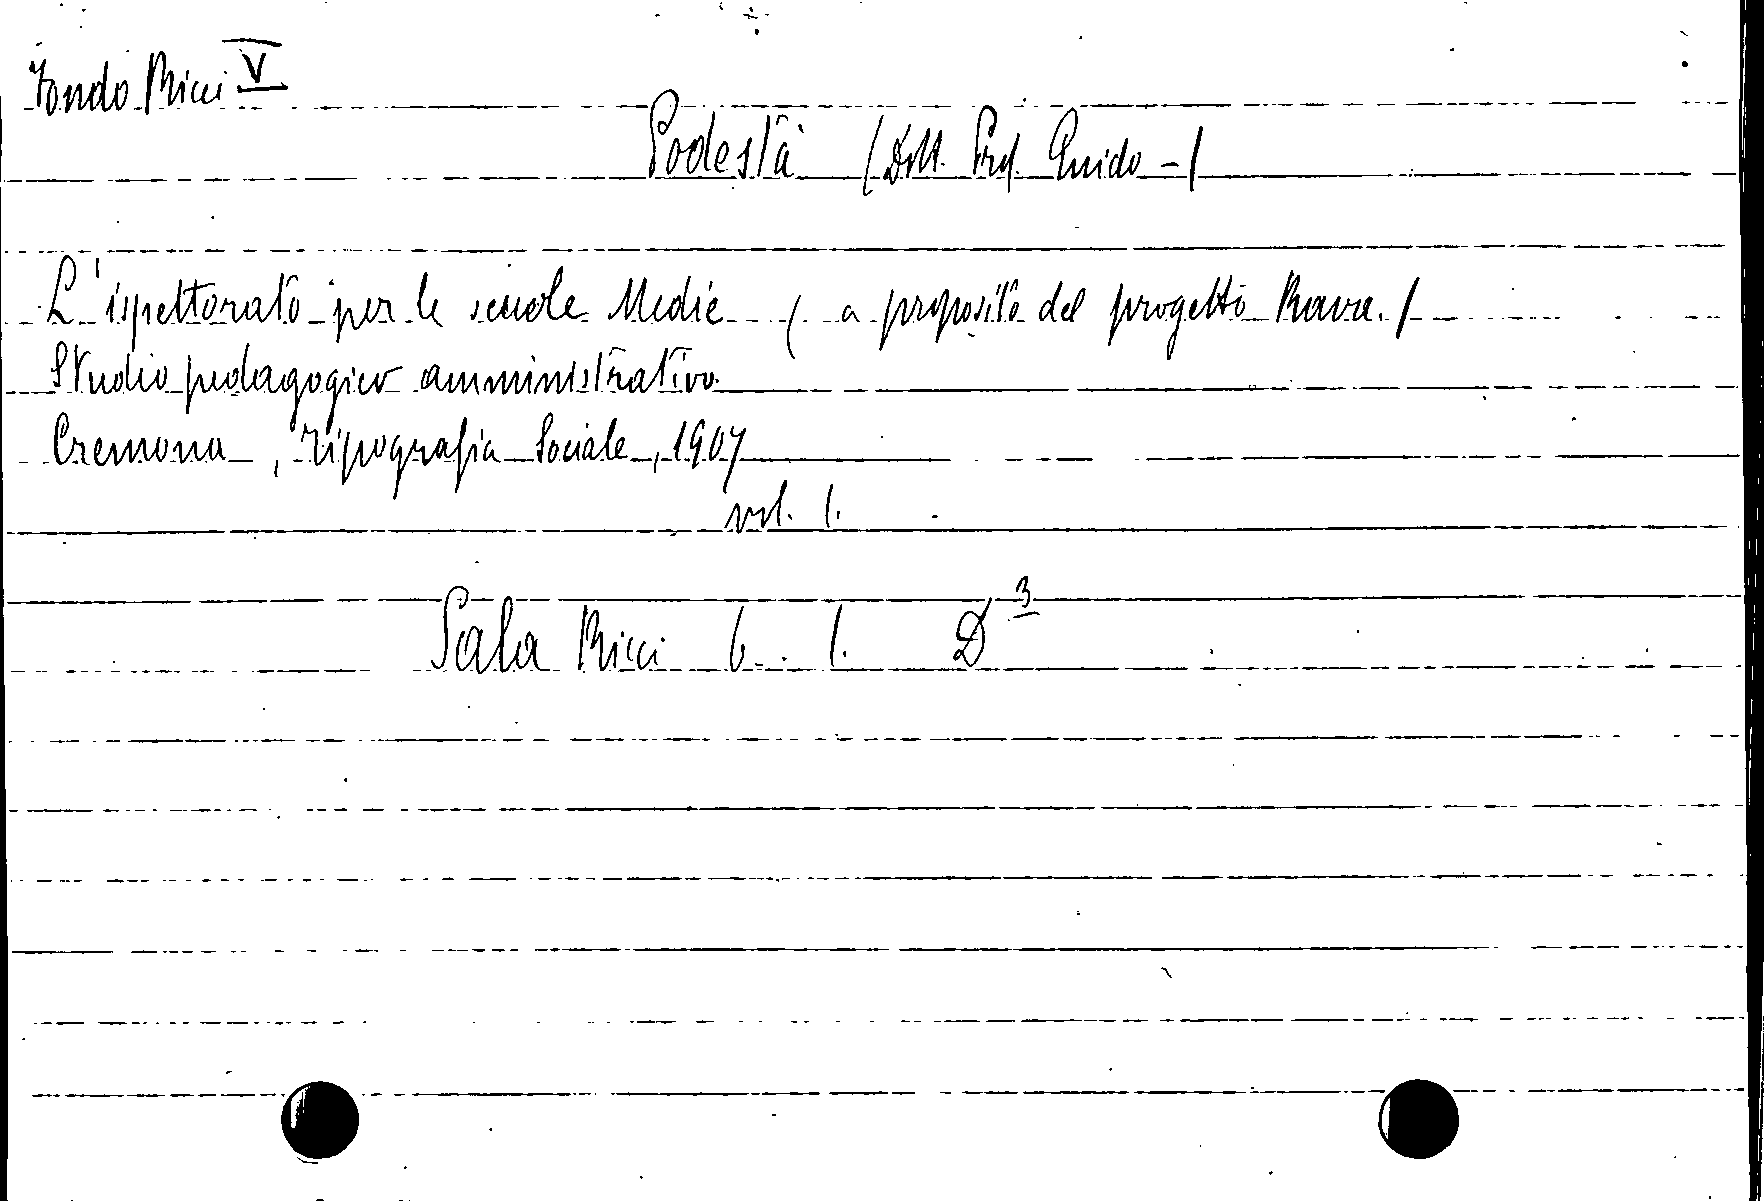 Fondo Ricci V
Podestà (Dott. Prof. Guido -)
L'ispettorato per le scuole Medie ( a proposito del progetto Rava.)
Studio pedagogico amministrativo
Cremona, Tipografia Sociale, 1907
vol. 1.
Sala Ricci 6. 1. D 3